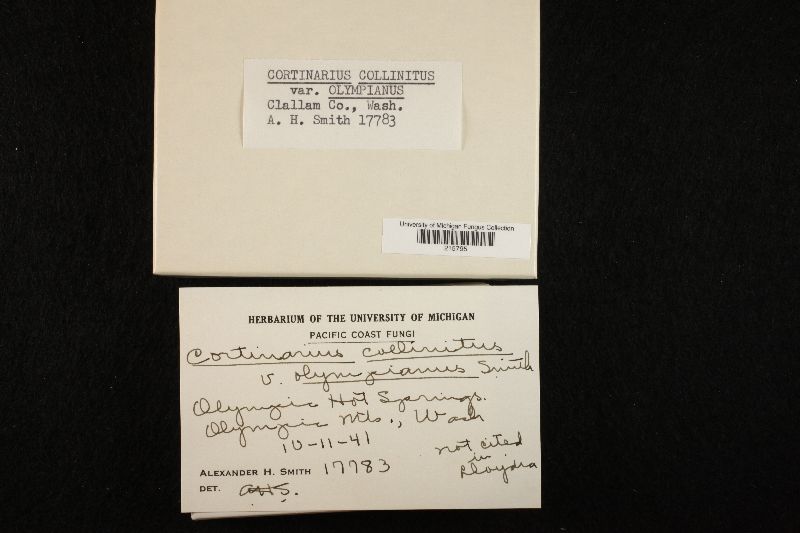 CORTINARIUS COLLINITUS
var. OLYMPIANUS
Clallam Co., Wash.
A. H. Smith 17783
University of Michigan Fungus Collection
HERBARIUM OF THE UNIVERSITY OF MICHIGAN
PACIFIC COAST FUNGI
Cortinarius collinitus
v. olympianus Smith
Olympic Hot Springs.
Olympic Mts., Wash
10-11-41
not cited
in
Lloydia
ALEXANDER H. SMITH 17783
DET. AHS.